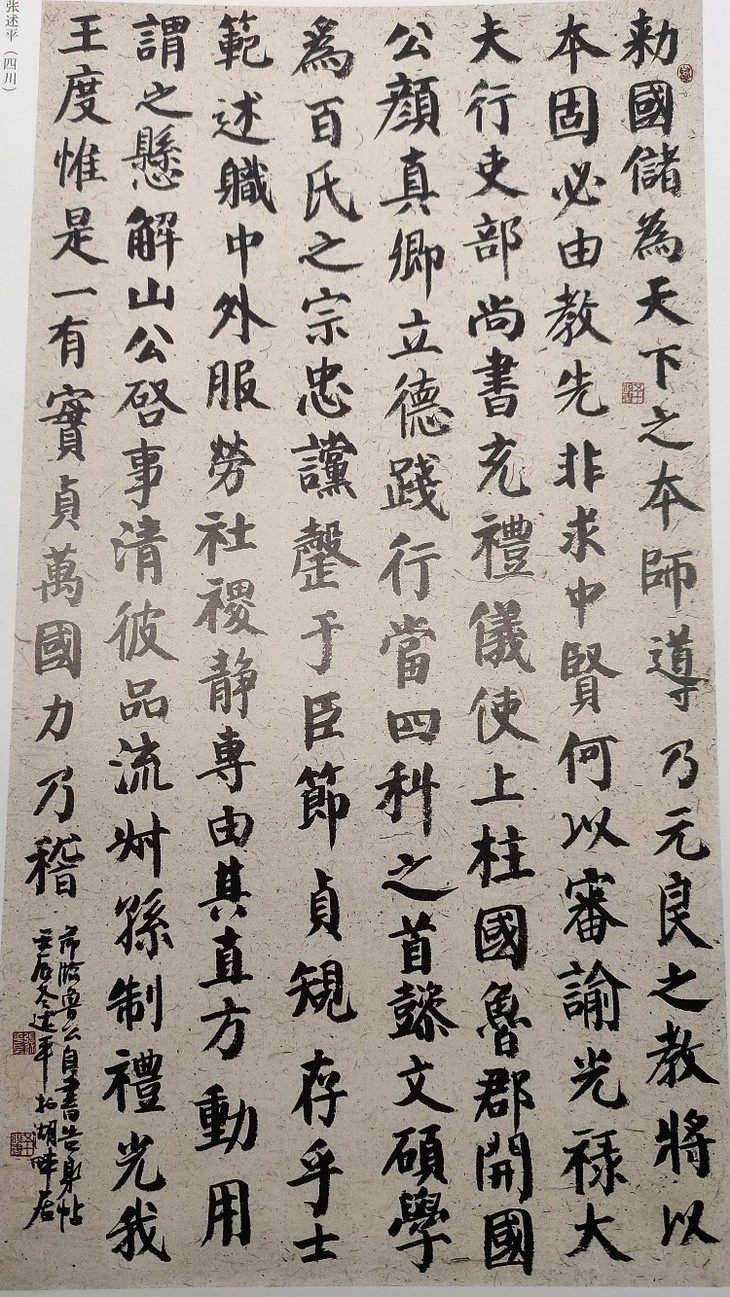 张述平（四川）
勅國儲為天下之本師導乃元良之教將以
本固必由教先非求中賢何以審諭光祿大
夫行吏部尚書充禮儀使上柱國魯郡開國
公顏真卿立德踐行當四科之首懿文碩學
為百氏之宗忠讜罄于臣節貞規存乎士
範述職中外服勞社稷静專由其直方動用
謂之懸解山公啓事清彼品流叔孫制禮光我
王度惟是一有實貞萬國力乃稽
節臨魯公自書告身帖
壬辰冬述平於湖畔居